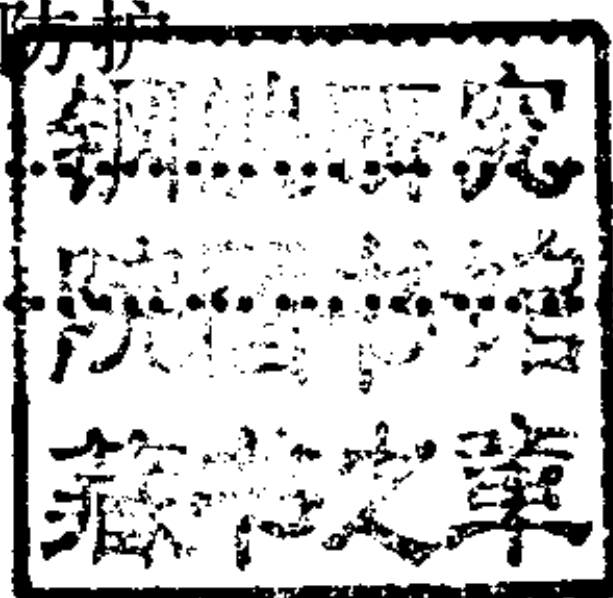 防护
钢铁研究
院图书馆
藏书之章